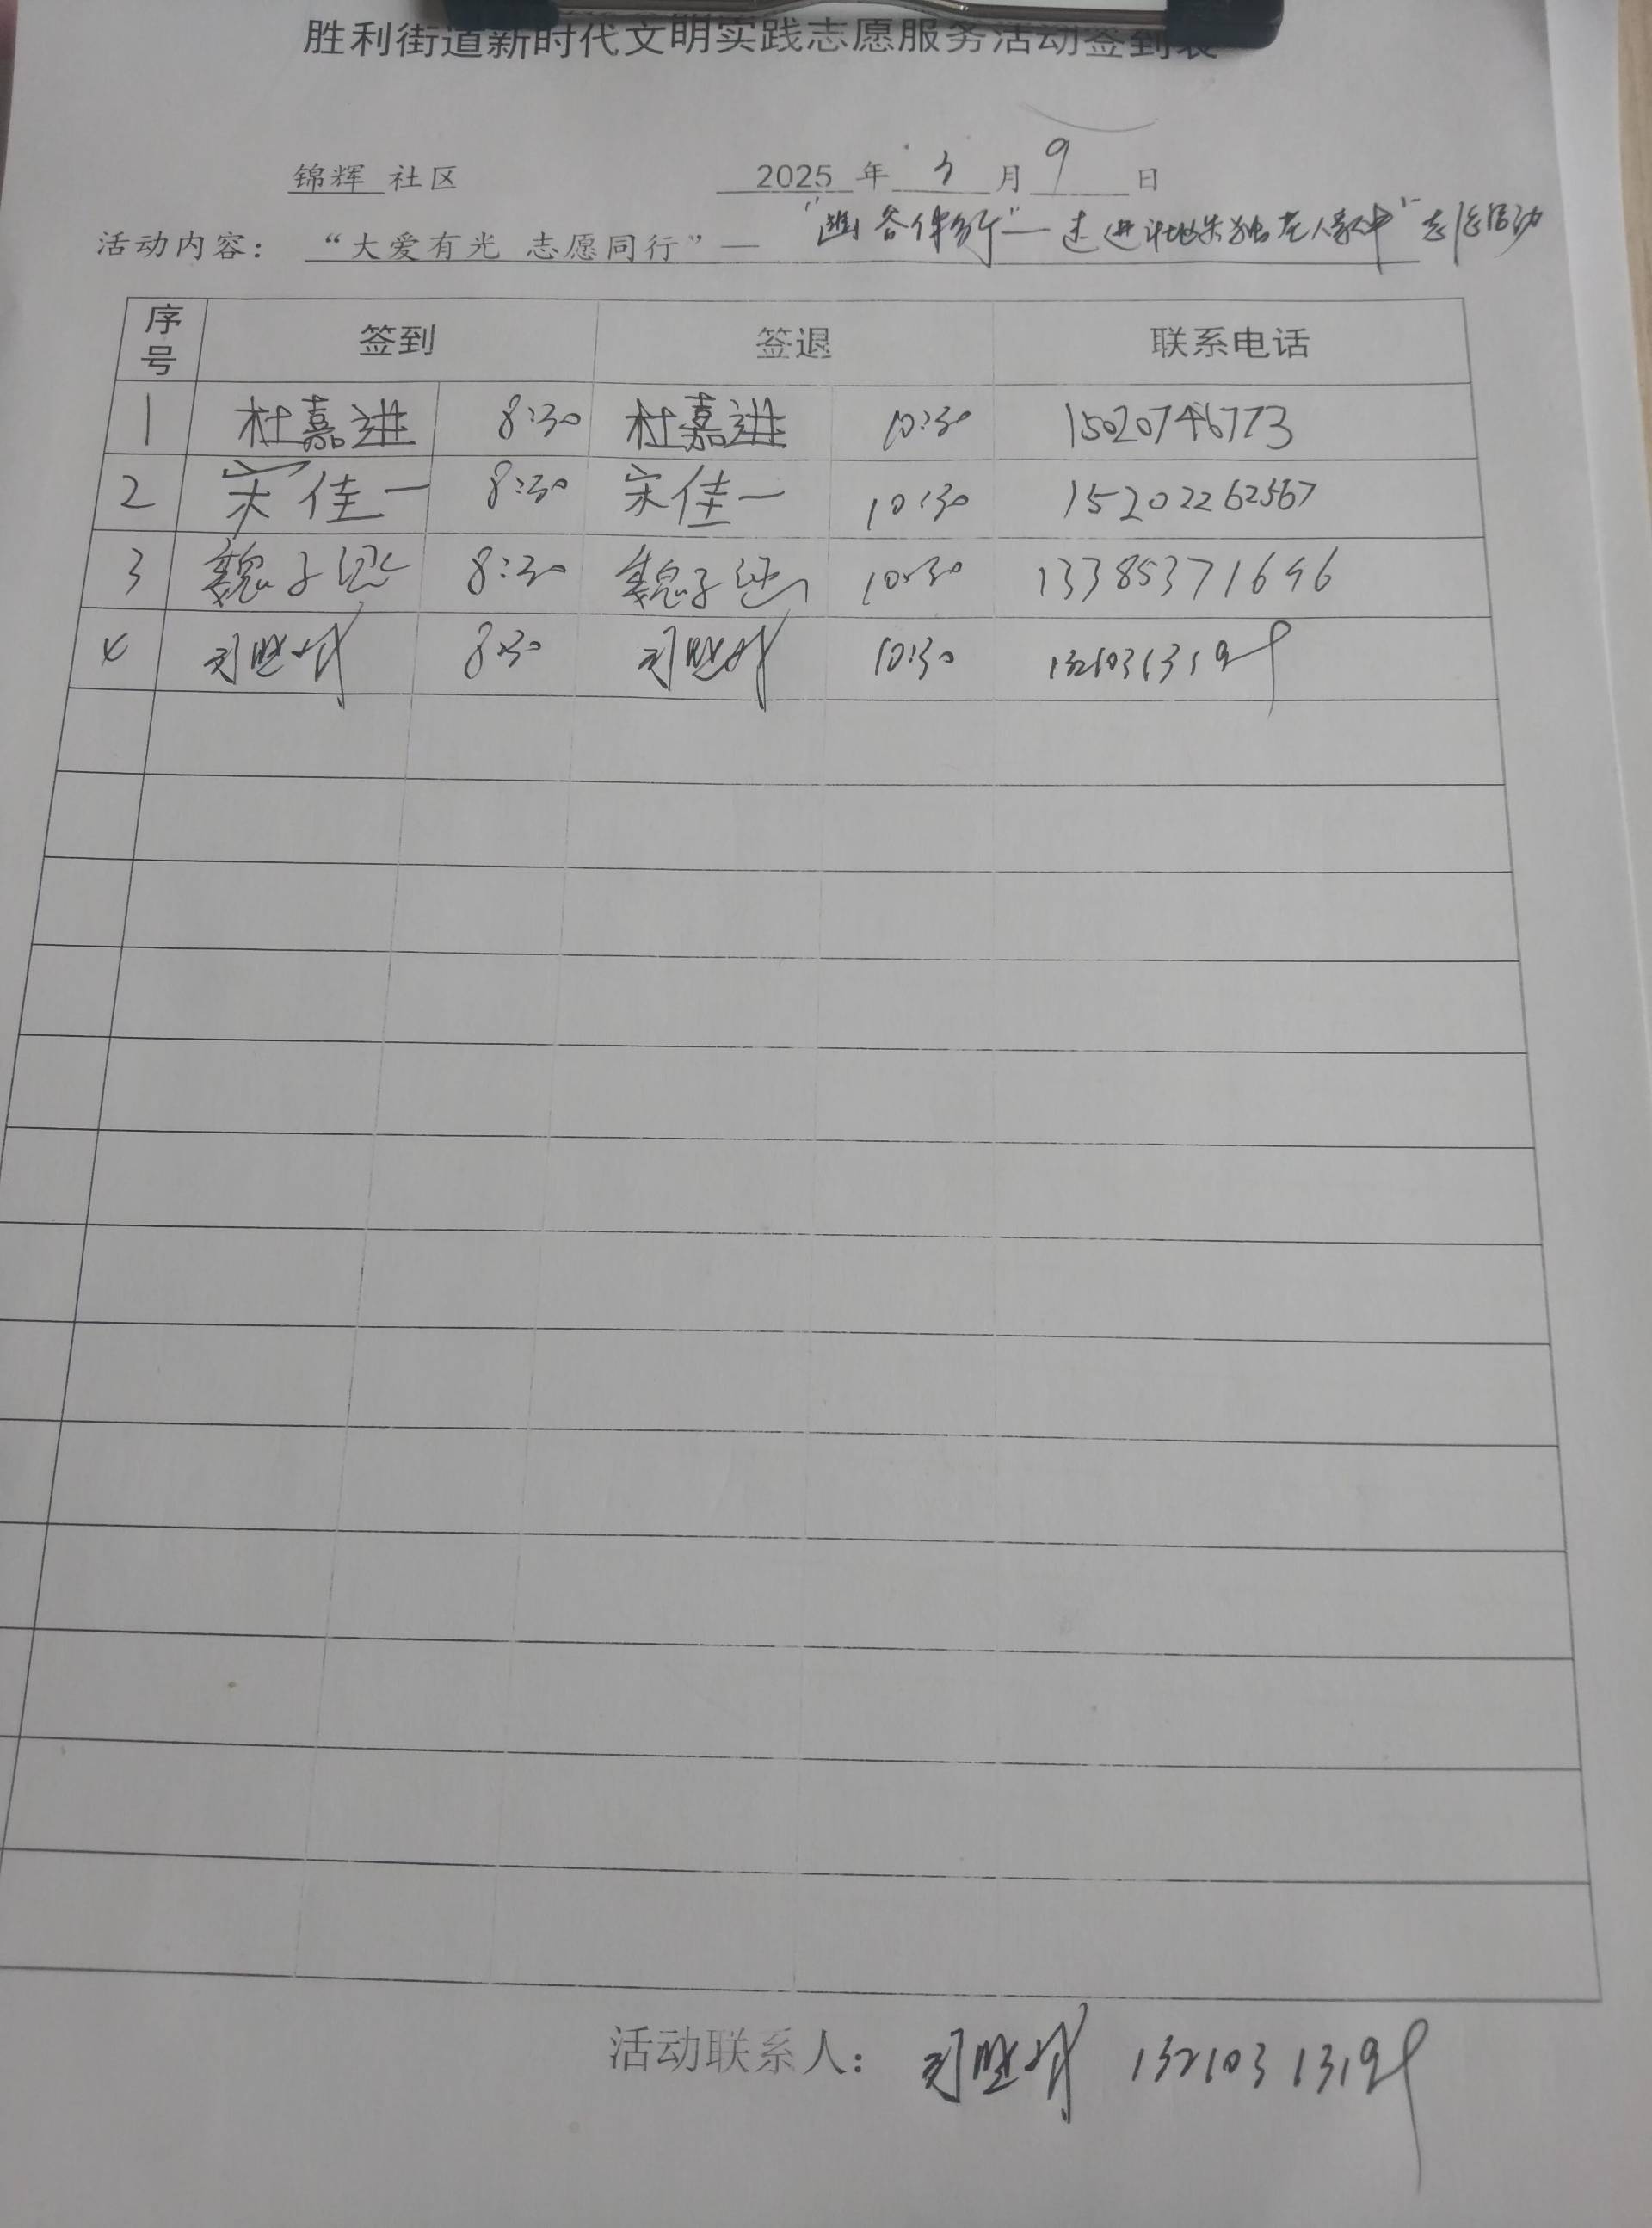 胜利街道新时代文明实践志愿服务活动签到表
锦辉 社区 2025 年 3 月 9 日
活动内容： “大爱有光 志愿同行”— 伴行”— 走进 失独老人家中” 志愿活动
序号 签到 签退 联系电话
1 杜嘉进 8:30 杜嘉进 10:30
2 宋佳一 8:30 宋佳一 10:30 15202262567
3 魏子 8:30 魏子 10:30 13385371696
4 8:30 10:30
活动联系人：